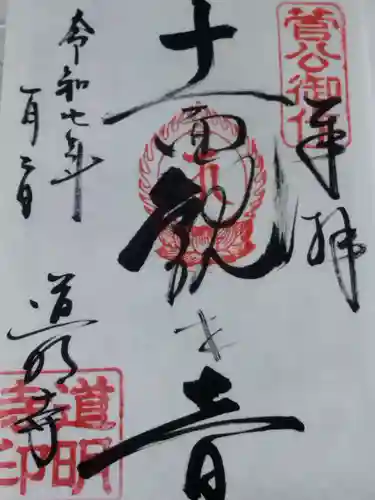 奉拝
菅公御作
十一面観世音
令和七年
一月二日
道明寺
道明寺印